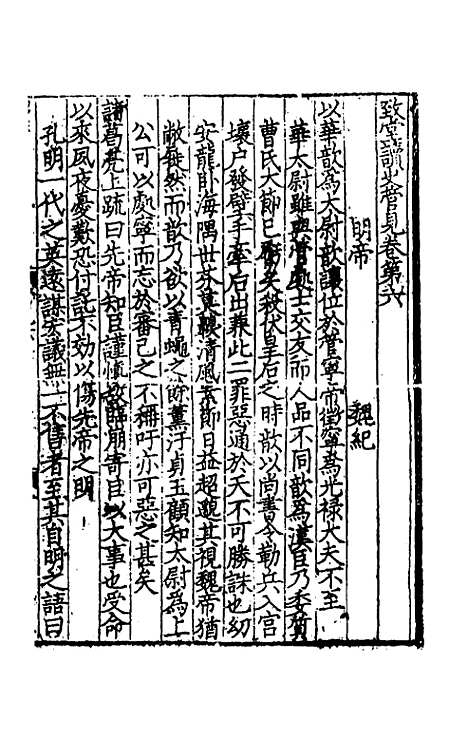 致堂讀史管見卷第六
明帝 魏紀
以華歆為太尉歆讓位於管寧帝徵寧為光祿大夫不至
華太尉雖與管處士交友而人品不同歆為漢臣乃委質
曹氏大節已虧矣秋伏皇后之時歆以尚書令勒兵入宮
壞戶發壁手牽后出兼此二罪惡通於天不可勝誅也幼
安龍卧海隅世芬莫驥清風素節日益超邈其視魏帝猶
敝屣然而歆乃欲以青蠅之 薰汙貞玉顧知太尉為上
公可以處寧而忘於審己之不稱吁亦可惡之甚矣
諸葛亮上疏曰先帝知臣謹慎故臨崩寄臣以大事也受命
以來夙夜憂歎恐付託不効以傷先帝之明
孔明一代之英遠謀宏議無一不售者至其自明之語曰